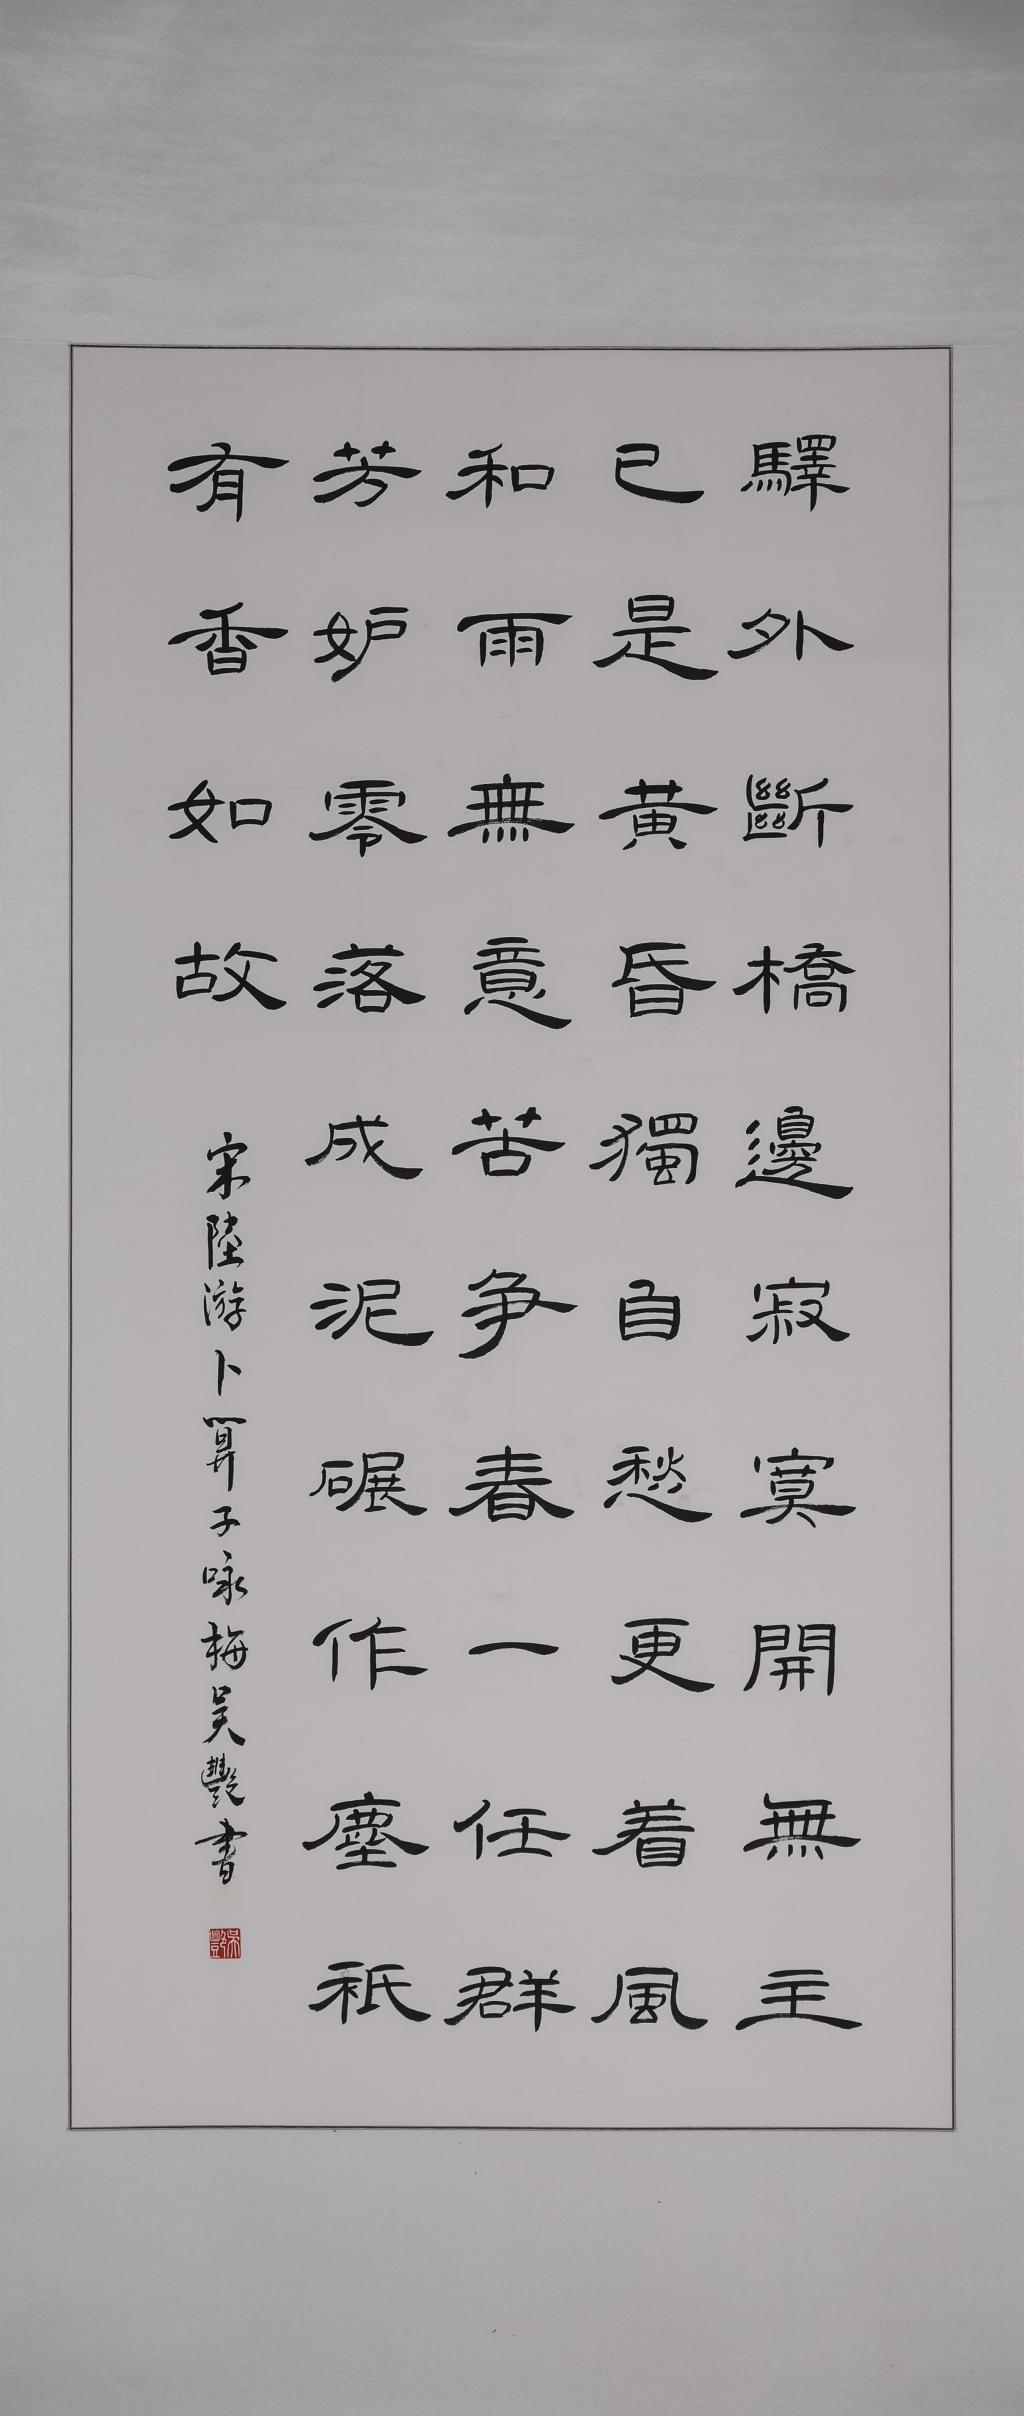 驛外斷橋邊寂寞開無主
已是黃昏獨自愁更着風
和雨無意苦争春一任群
芳妒零落成泥碾作塵衹
有香如故
宋陸游卜算子咏梅吴艷書
吴艷